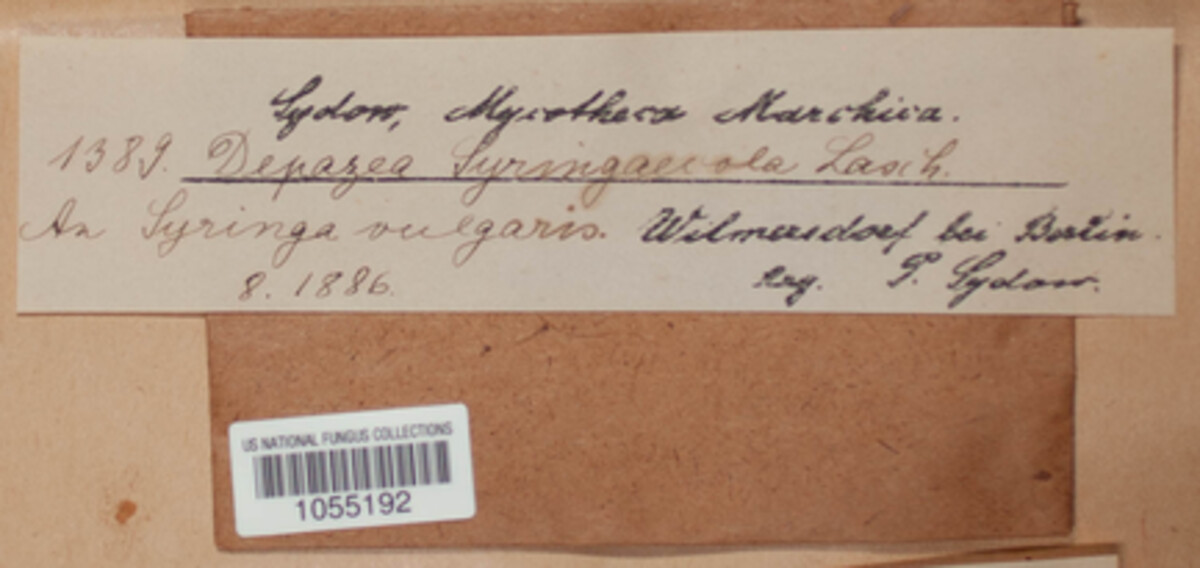 Sydow, Mycotheca Marchica.
1389. Depazea Syringaecola Lasch.
An Syringa vulgaris. Wilmersdorf bei Berlin.
8. 1886. leg. P. Sydow.
US NATIONAL FUNGUS COLLECTIONS
1055192